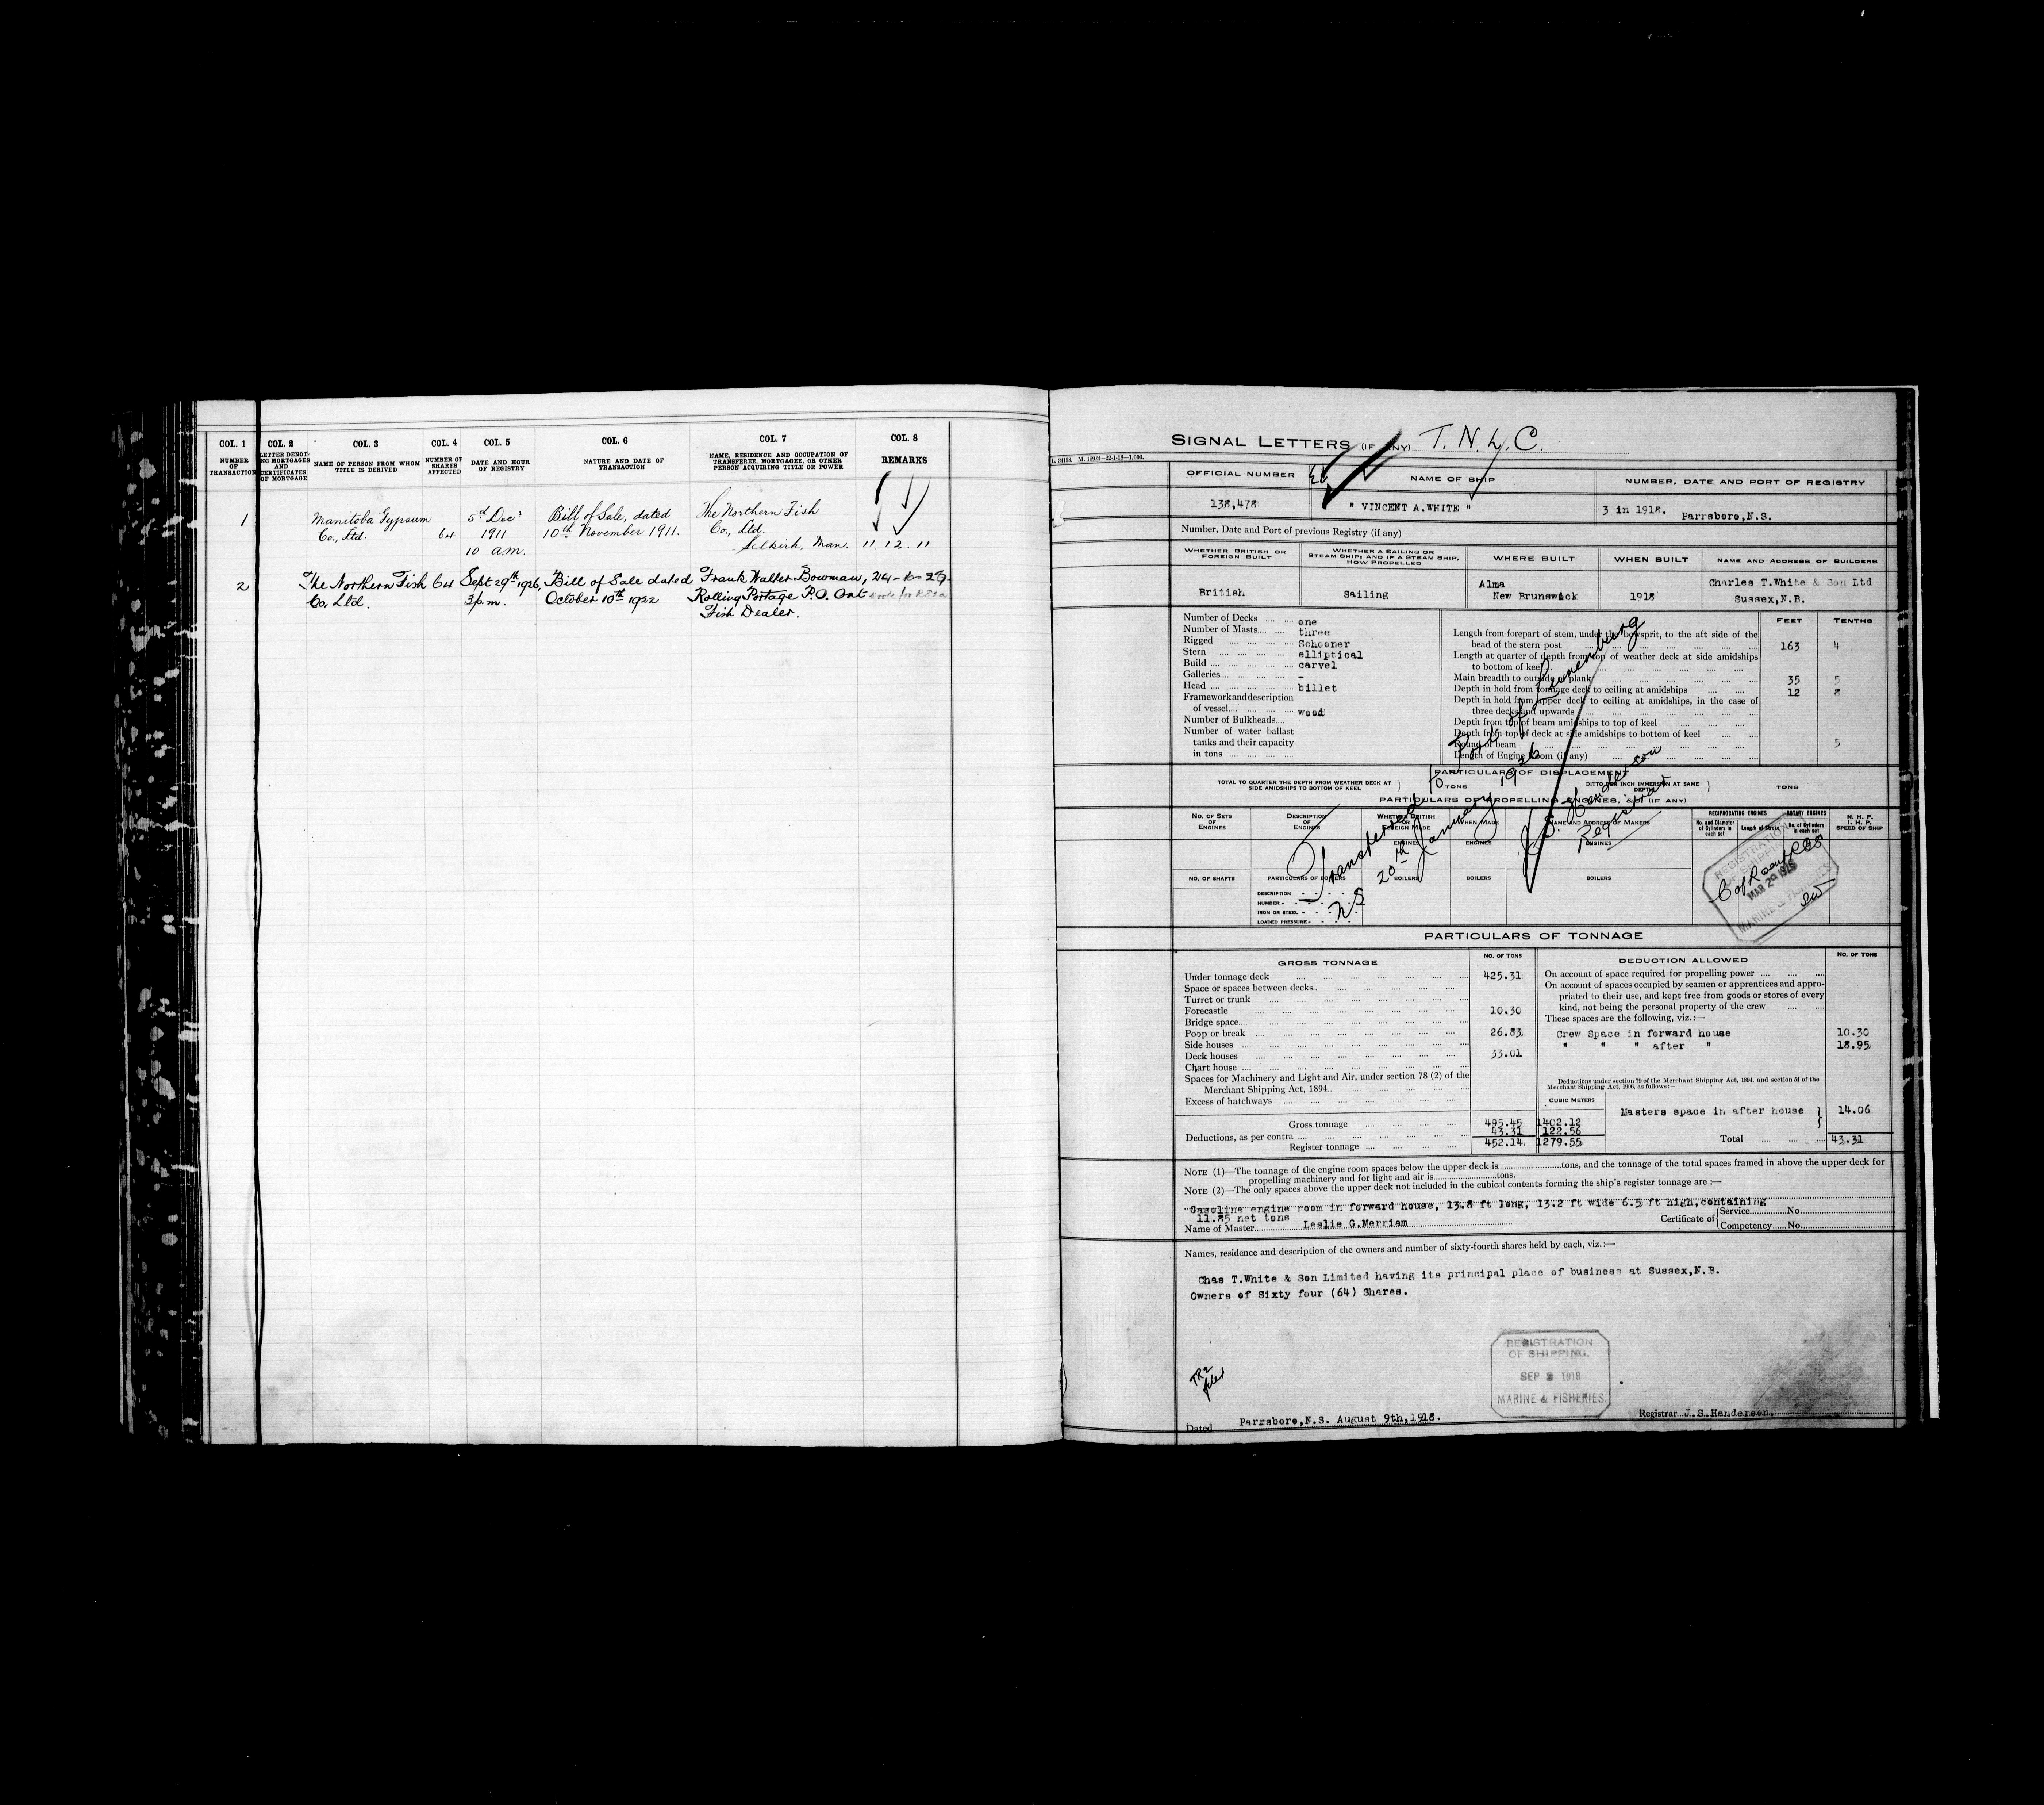 COL. 1 COL. 2 COL. 3 COL. 4 COL. 5 COL. 6 COL. 7 COL. 8
NUMBER OF TRANSACTION
LETTER DENOT- ING MORTGAGES AND CERTIFICATES OF MORTGAGE
NAME OF PERSON FROM WHOM TITLE IS DERIVED
NUMBER OF SHARES AFFECTED
DATE AND HOUR OF REGISTRY
NATURE AND DATE OF TRANSACTION
NAME, RESIDENCE AND OCCUPATION OF TRANSFEREE, MORTGAGEE, OR OTHER PERSON ACQUIRING TITLE OR POWER
REMARKS
1 Manitoba Gypsum 5th Decr Bill of Sale, dated The Northern Fish
Co., Ltd. 64 1911 10th November 1911. Co., Ltd.
10 am. Selkirk, Man. 11.12.11
2 The Northern Fish 64 Sept 29th 1926, Bill of Sale dated Frank Walter Bowman,
Co. Ltd. 3 p.m. October 10th 1922 Rolling Portage P.O. Ont
Fish Dealer.
SIGNAL LETTERS (IF ANY) T. N. L. C.
L. 94188. M. 13901-22-1-18-1,000.
OFFICIAL NUMBER NAME OF SHIP NUMBER, DATE AND PORT OF REGISTRY
138,478 " VINCENT A.WHITE " 3 in 1918. Parrsboro,N.S.
Number, Date and Port of previous Registry (if any)
WHETHER BRITISH OR FOREIGN BUILT
WHETHER A SAILING OR STEAM SHIP; AND IF A STEAM SHIP, HOW PROPELLED
WHERE BUILT WHEN BUILT NAME AND ADDRESS OF BUILDERS
British Sailing Alma New Brunswick 1918 Charles T.White & Son Ltd
Sussex,N.B.
Number of Decks one
Number of Masts three
Rigged Schooner
Stern elliptical
Build carvel
Galleries -
Head billet
Framework and description
of vessel wood
Number of Bulkheads
Number of water ballast
tanks and their capacity
in tons
FEET TENTHS
Length from forepart of stem, under the bowsprit, to the aft side of the
head of the stern post 163 4
Length at quarter of depth from top of weather deck at side amidships
to bottom of keel
Main breadth to outside of plank 35 5
Depth in hold from tonnage deck to ceiling at amidships 12 8
Depth in hold from upper deck to ceiling at amidships, in the case of
three decks and upwards
Depth from top of beam amidships to top of keel
Depth from top of deck at side amidships to bottom of keel
Round of beam 5
Length of Engine Room (if any)
Transferred to Port of Lunenburg
N.S. 20th January 1926
J. S. Henderson
Registrar
PARTICULARS OF DISPLACEMENT
TOTAL TO QUARTER THE DEPTH FROM WEATHER DECK AT SIDE AMIDSHIPS TO BOTTOM OF KEEL } TONS
DITTO PER INCH IMMERSION AT SAME DEPTH } TONS
PARTICULARS OF PROPELLING ENGINES, &C. (IF ANY)
NO. OF SETS OF ENGINES
DESCRIPTION OF ENGINES
WHETHER BRITISH OR FOREIGN MADE
WHEN MADE
NAME AND ADDRESS OF MAKERS
RECIPROCATING ENGINES
No. and Diameter of Cylinders in each set
Length of Stroke
ROTARY ENGINES
No. of Cylinders in each set
N. H. P.
I. H. P.
SPEED OF SHIP
ENGINES ENGINES ENGINES
NO. OF SHAFTS PARTICULARS OF BOILERS BOILERS BOILERS BOILERS
DESCRIPTION
NUMBER
IRON OR STEEL
LOADED PRESSURE
REGISTRATION
OF SHIPPING
MAR 29 1926
MARINE & FISHERIES
PARTICULARS OF TONNAGE
GROSS TONNAGE NO. OF TONS DEDUCTION ALLOWED NO. OF TONS
Under tonnage deck 425.31
Space or spaces between decks
Turret or trunk
Forecastle 10.30
Bridge space
Poop or break 26.83
Side houses
Deck houses 33.01
Chart house
Spaces for Machinery and Light and Air, under section 78 (2) of the
Merchant Shipping Act, 1894
Excess of hatchways
Gross tonnage 495.45 1402.12
Deductions, as per contra 43.31 122.56
Register tonnage 452.14 1279.55
On account of space required for propelling power
On account of spaces occupied by seamen or apprentices and appro-
priated to their use, and kept free from goods or stores of every
kind, not being the personal property of the crew
These spaces are the following, viz.:—
Crew Space in forward house 10.30
" " " after " 18.95
Deductions under section 79 of the Merchant Shipping Act, 1894, and section 54 of the
Merchant Shipping Act, 1906, as follows:—
CUBIC METERS
Masters space in after house } 14.06
Total 43.31
NOTE (1)—The tonnage of the engine room spaces below the upper deck is tons, and the tonnage of the total spaces framed in above the upper deck for
propelling machinery and for light and air is tons.
NOTE (2)—The only spaces above the upper deck not included in the cubical contents forming the ship's register tonnage are :—
Gasoline engine room in forward house, 13.8 ft long, 13.2 ft wide 6.5 ft high,containing
11.85 net tons
Name of Master Leslie G.Merriam
Certificate of { Service No.
Competency No.
Names, residence and description of the owners and number of sixty-fourth shares held by each, viz.:—
Chas T.White & Son Limited having its principal place of business at Sussex,N.B.
Owners of Sixty four (64) Shares.
REGISTRATION
OF SHIPPING.
SEP 1918
MARINE & FISHERIES
Dated Parrsboro,N.S. August 9th,1918.
Registrar J.S.Henderson.